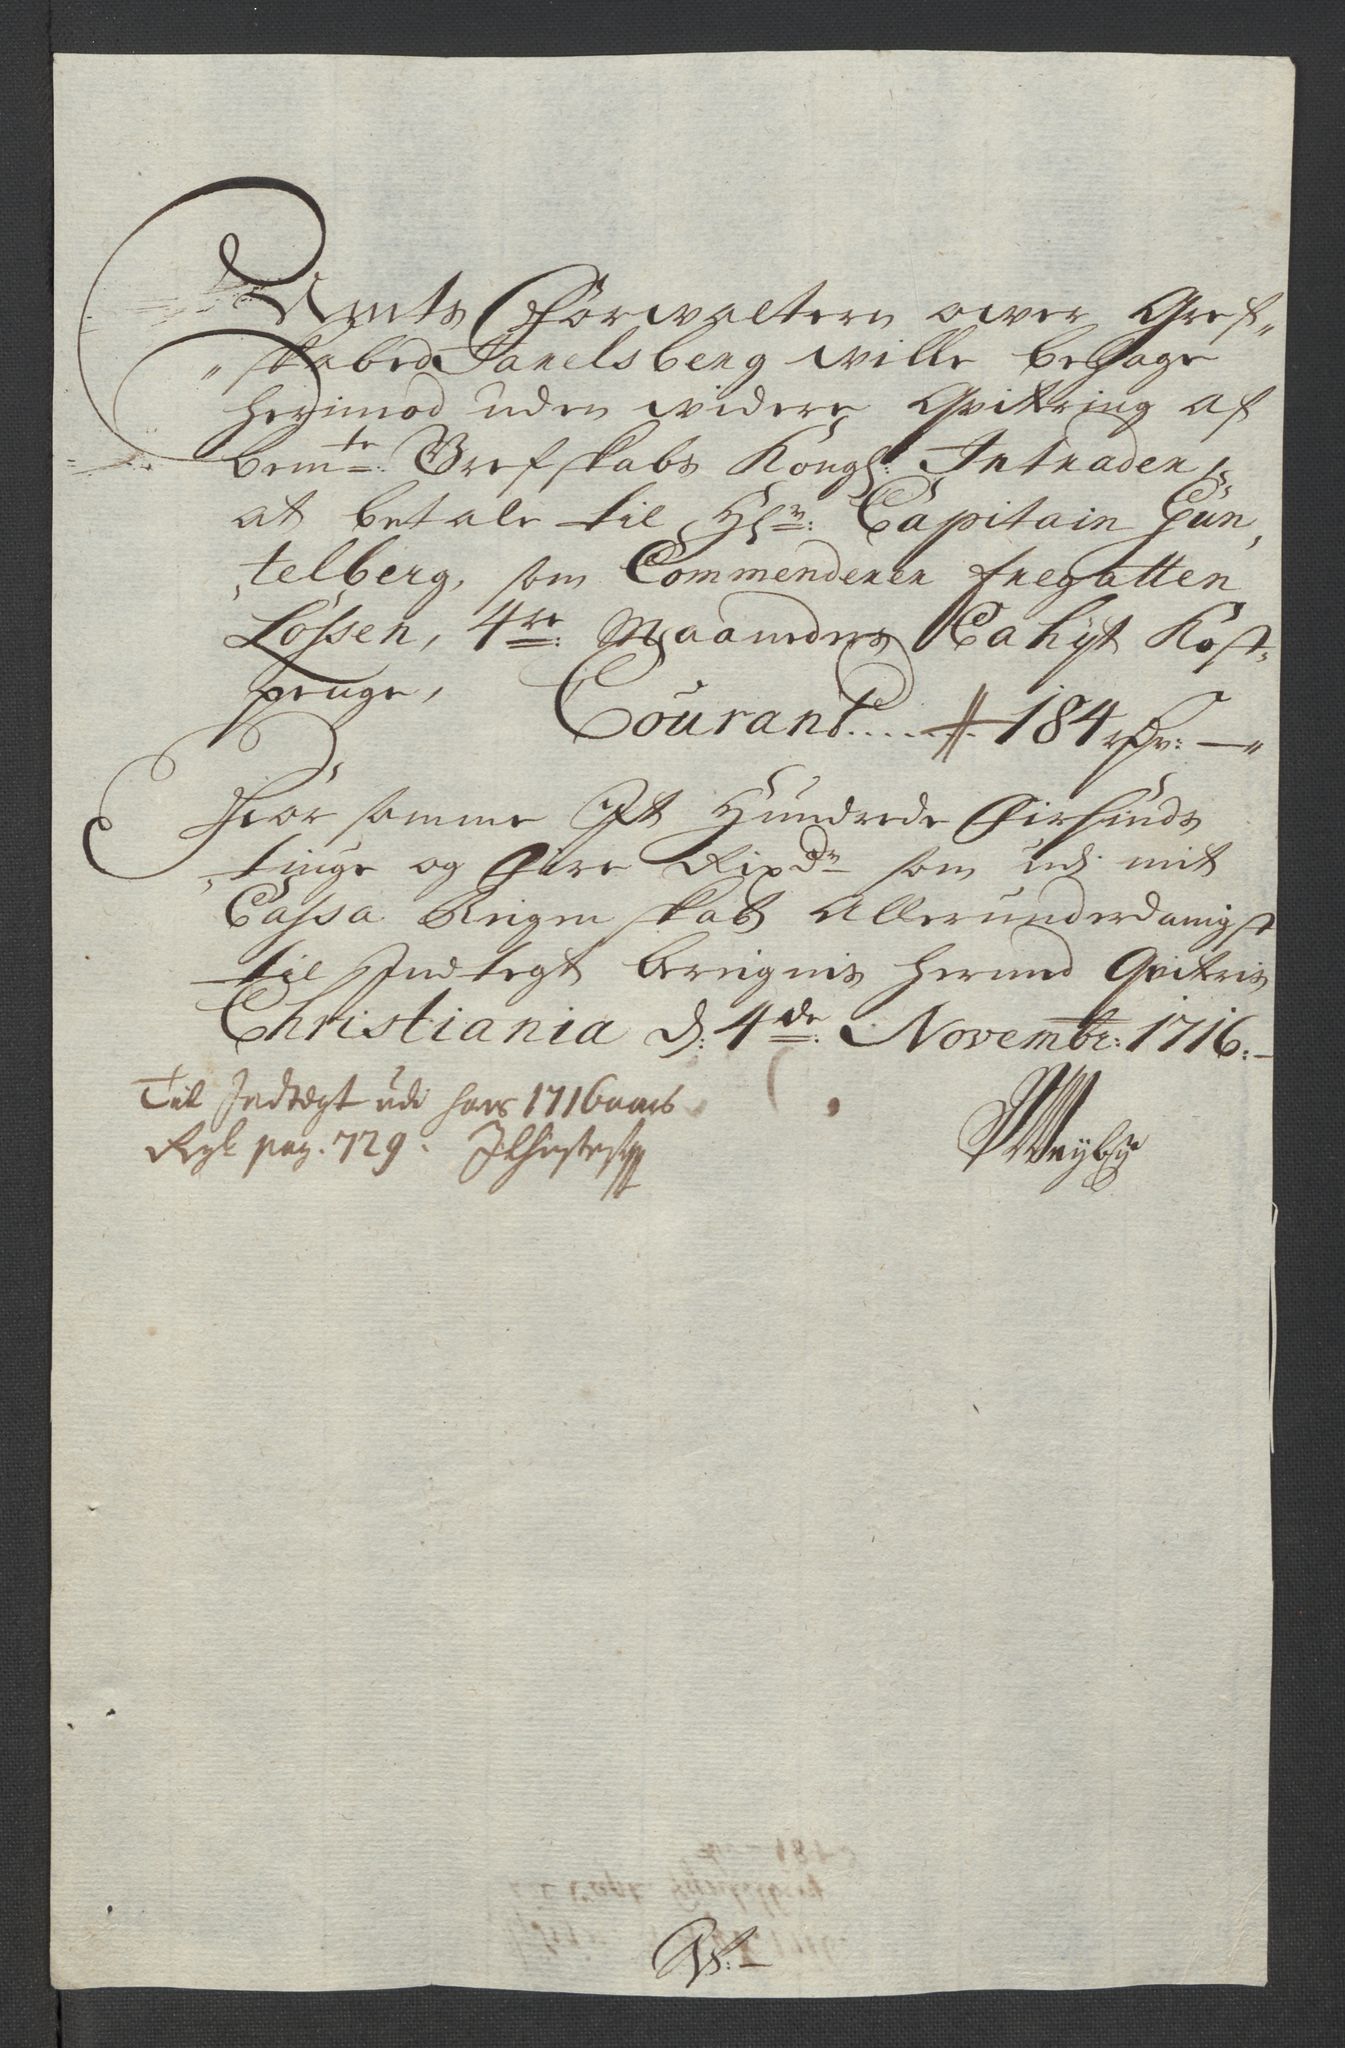 Amts Forwaltern ower Gref„
„skabed Jarelsberg wille behage
herimod uden widere Qvitring af
bemte: Grefskabs Kongl: Intrader,
at betale til Hr: Capitain Gün,
„telberg, som Commenderer fregatten
Lossen, 4re: Maaneders Cahÿt Kost„
penge, Courant..... 184 rdr: —„
Hvor somme Et Hundrede Firsinds
„tiuge og Fire Rixdr som udj mit
Cassa Reigenskab allerunderdanigst
til Indtegt bereignis hermed Qviteris
Christiania d: 4de: Novembr: 1716:—
Til Indtegt udi hans 1716 aars
Regk pag. 729.
Weybye
N:—